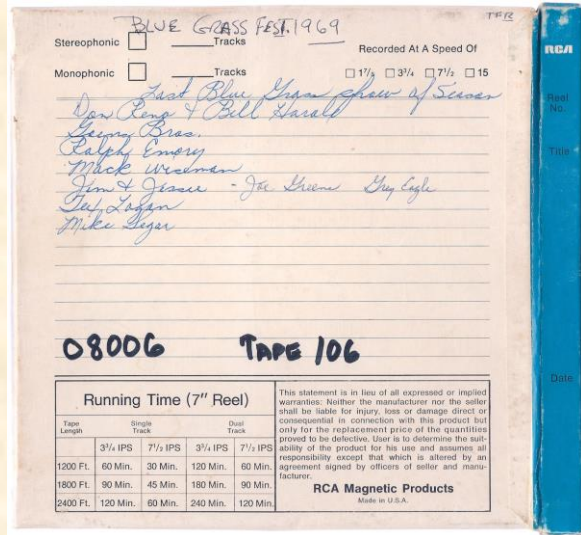 BLUE GRASS FEST. 1969
TFR
Stereophonic Tracks
Recorded At A Speed Of
Monophonic Tracks
1⅞ 3¾ 7½ 15
Last Blue Grass show of Season
Don Reno & Bill Harald
Goins Bros.
Ralph Emery
Mack Wiseman
Jim & Jessie - Joe Greene Grey Eagle
Tex Logan
Mike Segar
08006 TAPE 106
Running Time (7" Reel)
Tape Length Single Track Dual Track
3¾ IPS 7½ IPS 3¾ IPS 7½ IPS
1200 Ft. 60 Min. 30 Min. 120 Min. 60 Min.
1800 Ft. 90 Min. 45 Min. 180 Min. 90 Min.
2400 Ft. 120 Min. 60 Min. 240 Min. 120 Min.
This statement is in lieu of all expressed or implied
warranties: Neither the manufacturer nor the seller
shall be liable for injury, loss or damage direct or
consequential in connection with this product but
only for the replacement price of the quantities
proved to be defective. User is to determine the suit-
ability of the product for his use and assumes all
responsibility except that which is altered by an
agreement signed by officers of seller and manu-
facturer.
RCA Magnetic Products
Made in U.S.A.
RCA
Reel No.
Title
Date